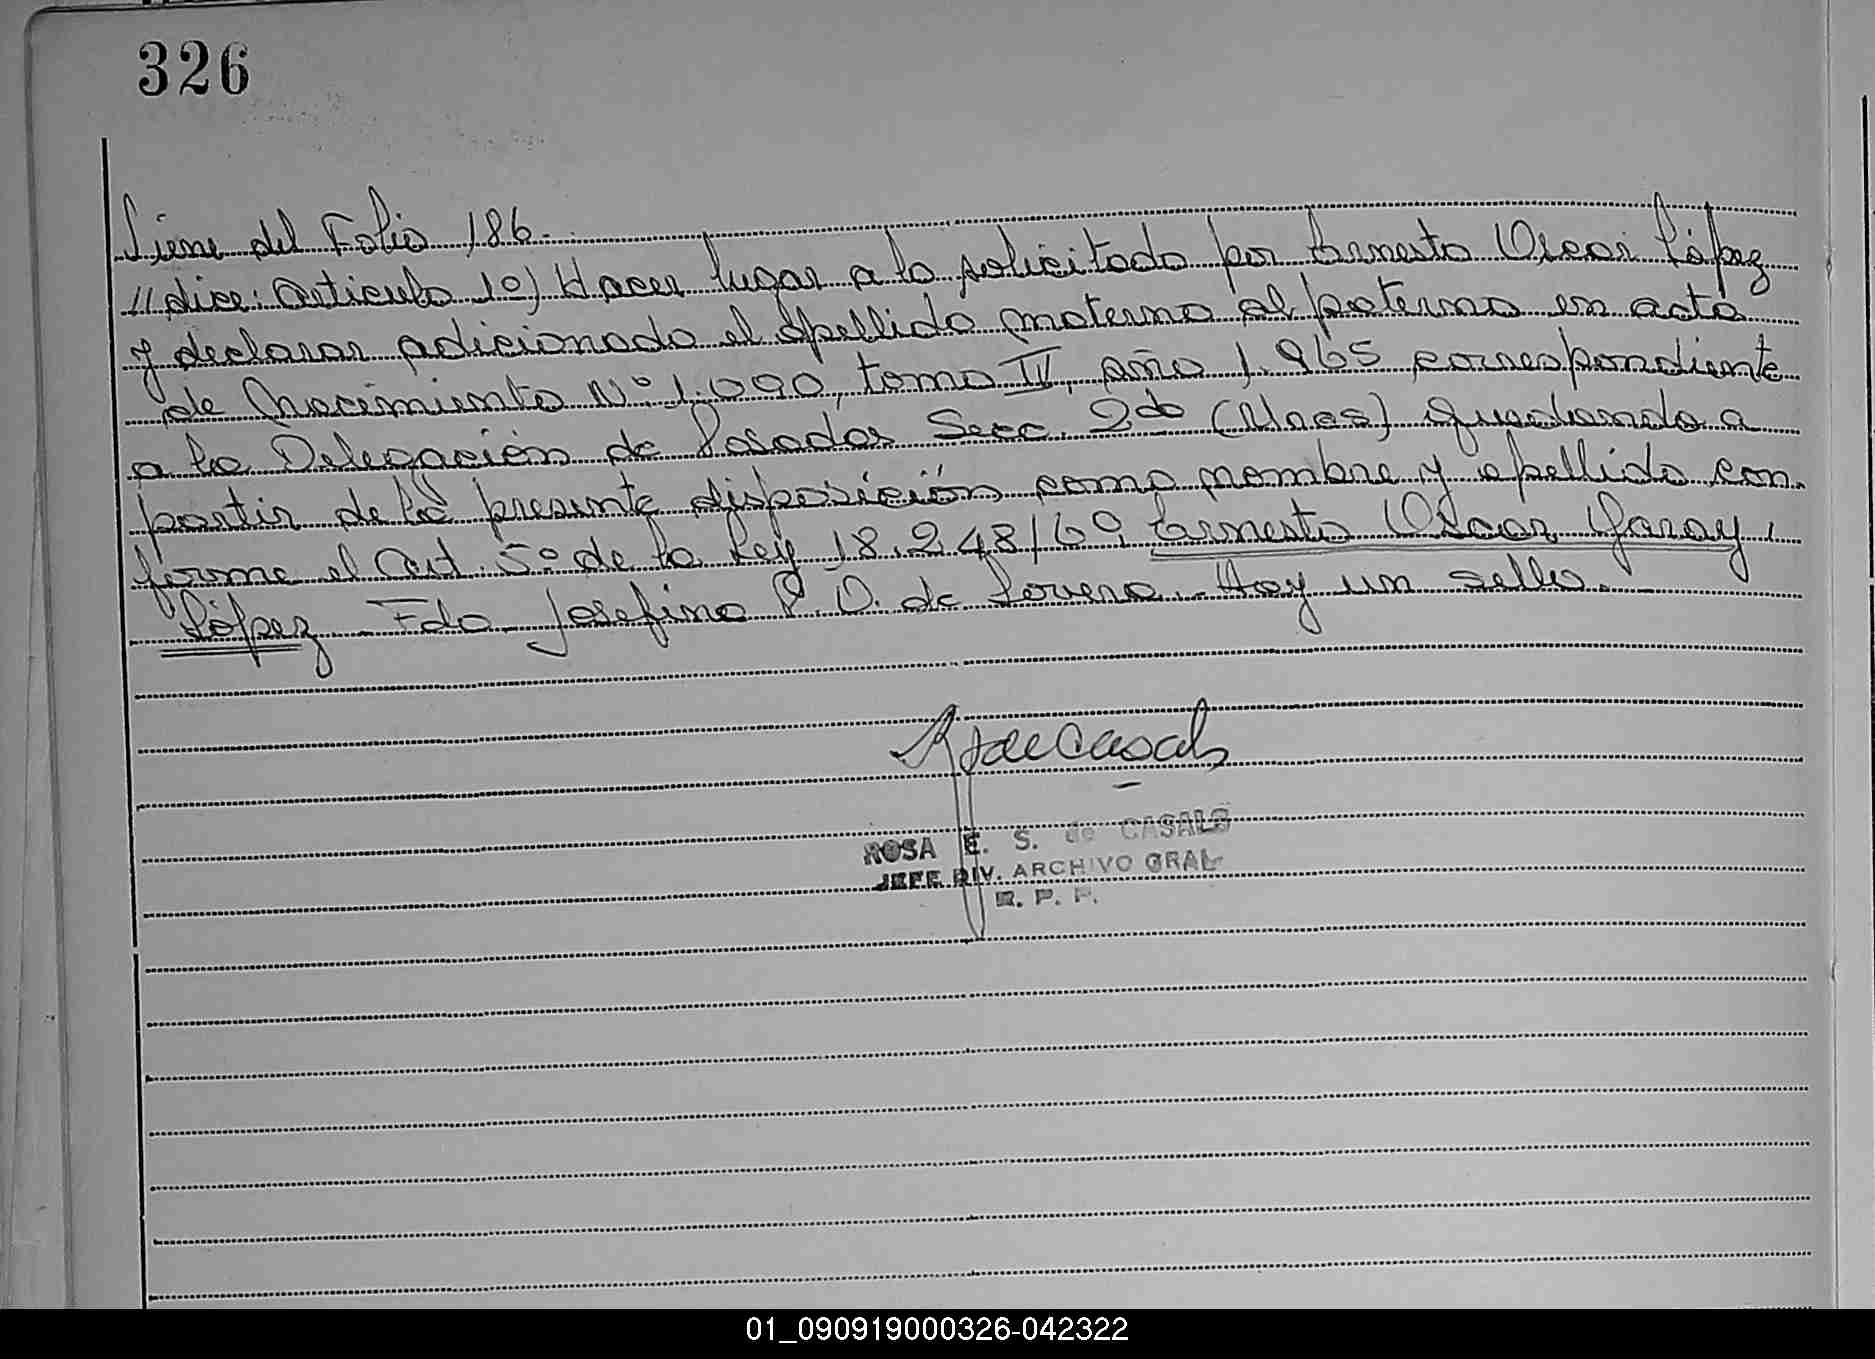 326
Viene del Folio 186.-
//dice: Artículo 1º) Hacer lugar a lo solicitado por Ernesto Oscar López
y declarar adicionado el Apellido materno al paterno en acta
de Nacimiento Nº 1.090, tomo IV, año 1.965 correspondiente
a la Delegación de Posadas Secc. 2da (Mnes) Quedando a
partir de la presente disposición como nombre y apellido con-
forme el Art. 5º de la Ley 18.248/69 Ernesto Oscar Garay,
López - Fdo Josefina P. O. de Lovera.- Hay un sello.-
R de Casals
ROSA E. S. de CASALS
JEFE DIV. ARCHIVO GRAL
R. P. P.
01_090919000326-042322